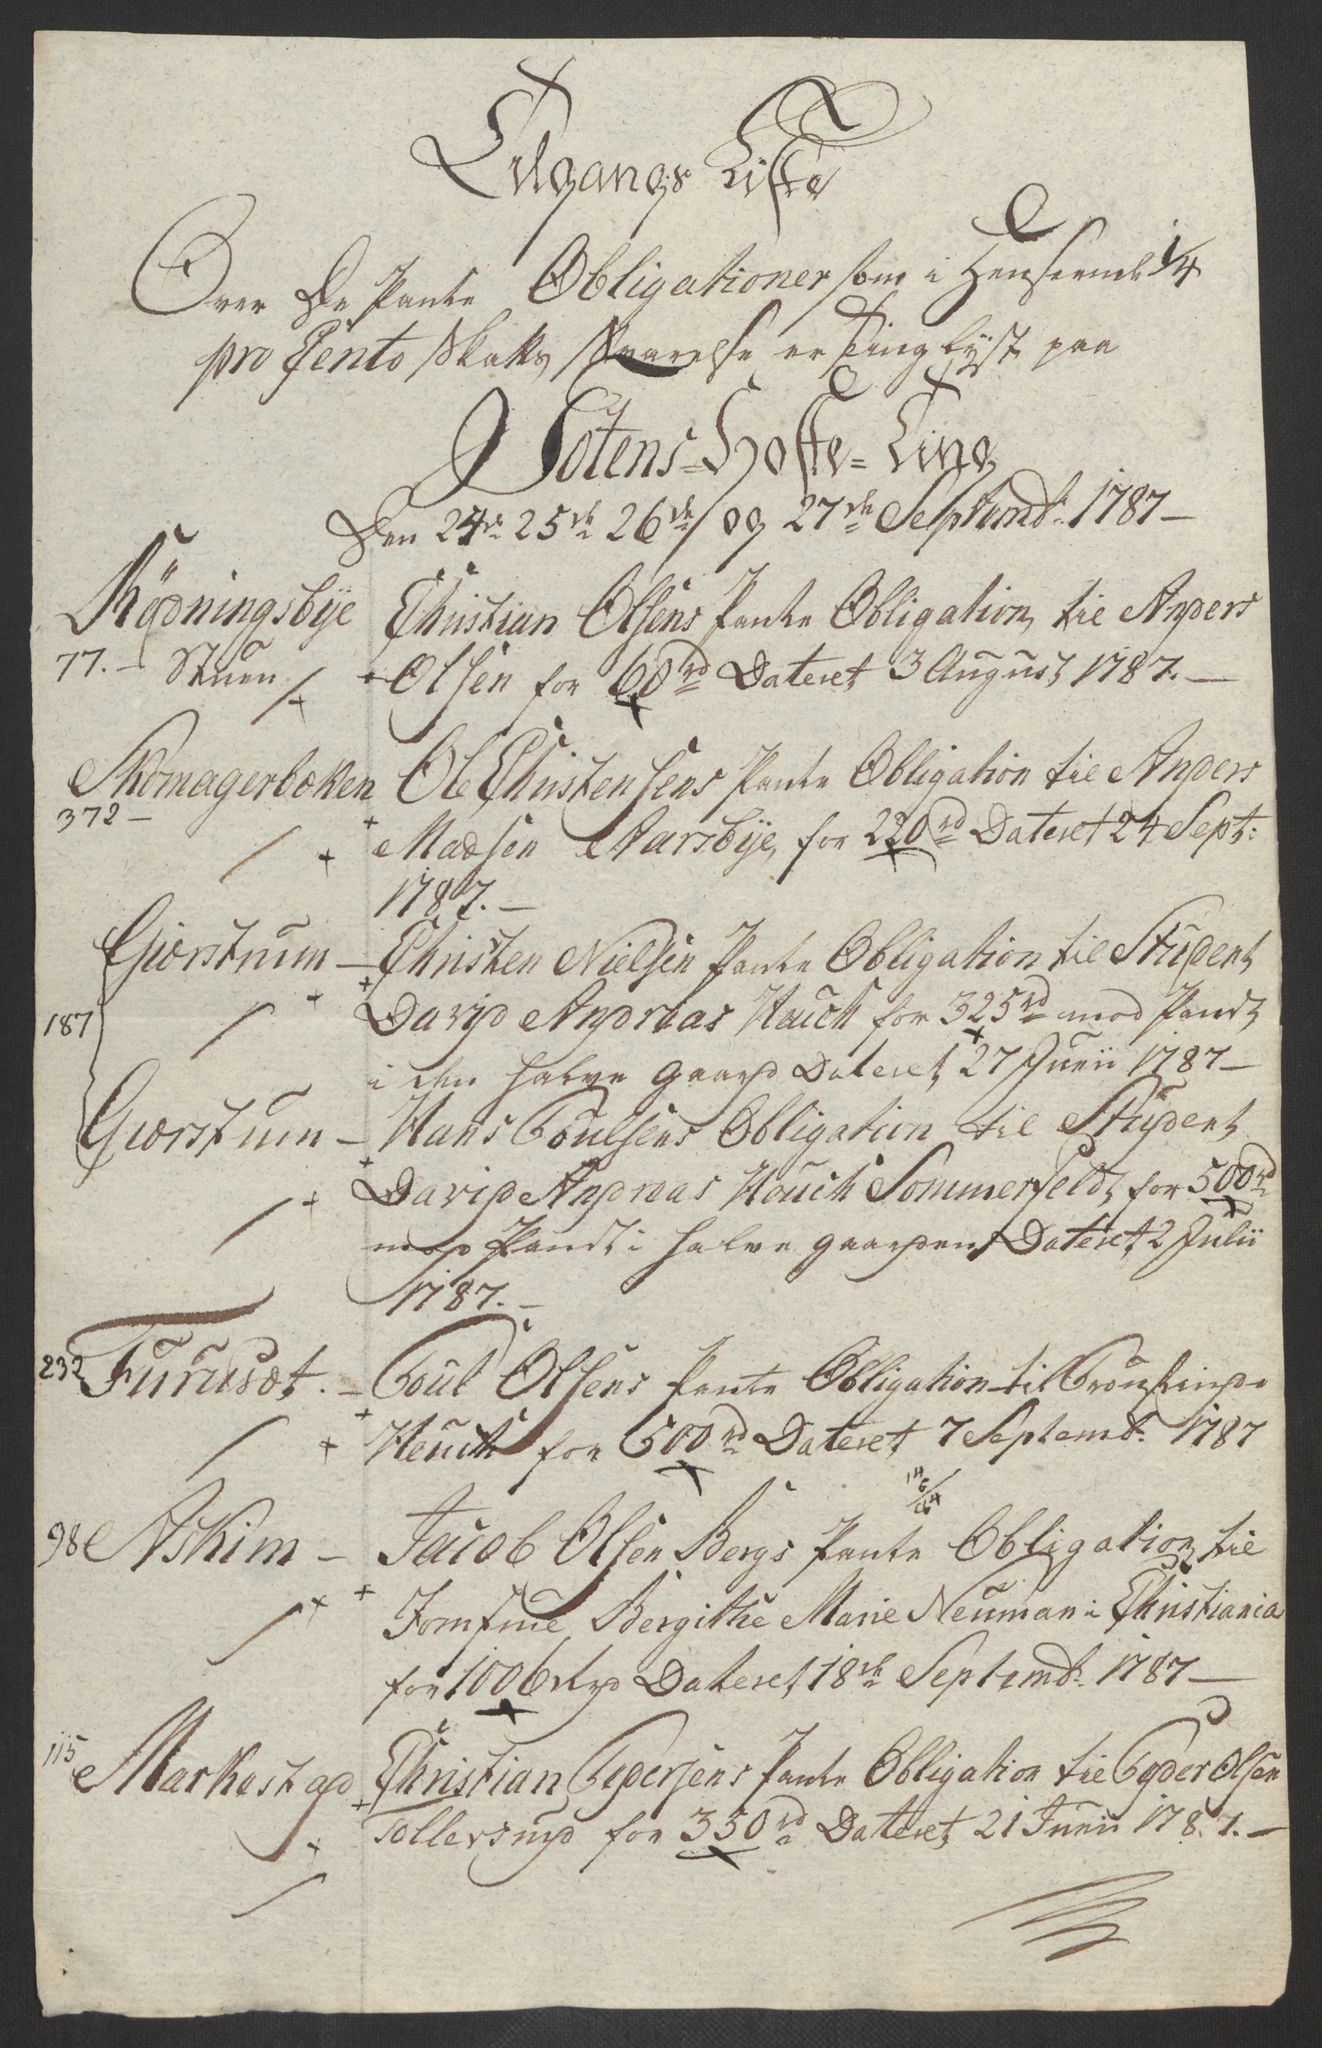 Udgangs Liste
Over De Pante Obligationer som i Henseende 1/4
pro Cento Skats Svarelse er Tinglyst paa
Totens Høste-Ting
Den 24de 25de 26de og 27de Septembr: 1787 –
Rødningsbye Christian Olsens Pante Obligation til Anders
77. – Stuen Olsen for 60 rd Dateret 3 August 1787. –
Skomagerbakken Ole Christensens Pante Obligation til Anders
372 – Madsen Narsbye, for 220 rd Dateret 24 Sept:
1787. –
Giørstrum – Christen Nielsen Pante Obligation til Student
187 David Andreas Hauch for 325 rd mod Pandt
i den halve gaard Dateret 27 Junii 1787 –
Giørstum – Hans Poulsens Obligation til Student
David Andreas Houch Sommerfeldt for 500 rd
mod Pandt i halve gaarden Dateret 2 Julii
1787. –
232 Furusæt. – Poul Olsens Pante Obligation til Provstinde
Houch for 500 rd Dateret 7 Septembr: 1787
98 Askim – Jacob Olsen Bergs Pante Obligation til
Jomfrue Bergithe Marie Neuman i Christiania
for 100 Dateret 18de Septembr: 1787 –
115 Markestad Christian Pedersens Pante Obligation til Peder Olsen
Tollersrud for 350 rd Dateret 21 Junii 1787. –